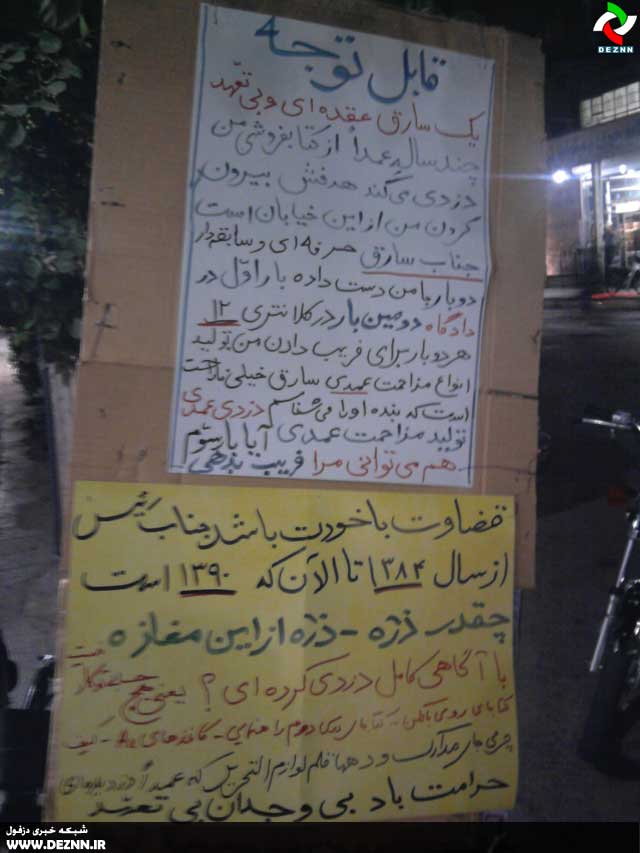 DEZNN
قابل توجه
یک سارق عقده ای و بی تعهد
چند ساله عمداً از کتابفروشی من
دزدی می کند هدفش بیرون
کردن من از این خیابان است
جناب سارق حرفه ای و سابقه دار
دو بار با من دست داده بار اوّل در
دادگاه دومین بار در کلانتری ۱۲
هر دو بار برای فریب دادن من تولید
انواع مزاحمت عمدی سارق خیلی ناراحت
است که بنده او را می شناسم دزدی عمدی
تولید مزاحمت عمدی آیا بار سوّم
هم می توانی مرا فریب بدهی
قضاوت با خودت باشد جناب رئیس
از سال ۱۳۸۴ تا الآن که ۱۳۹۰ است
چقدر ذرّه - ذرّه از این مغازه
با آگاهی کامل دزدی کرده ای ؟ یعنی هیچ
کتابای روی دوم راهنمایی - کاغذهای A4 - کیف
چرمی جای مدارک و دهها قلم لوازم التحریر که عمداً دزدیده
حرامت باد بی وجدان بی تعهد
شبکه خبری دزفول
WWW.DEZNN.IR